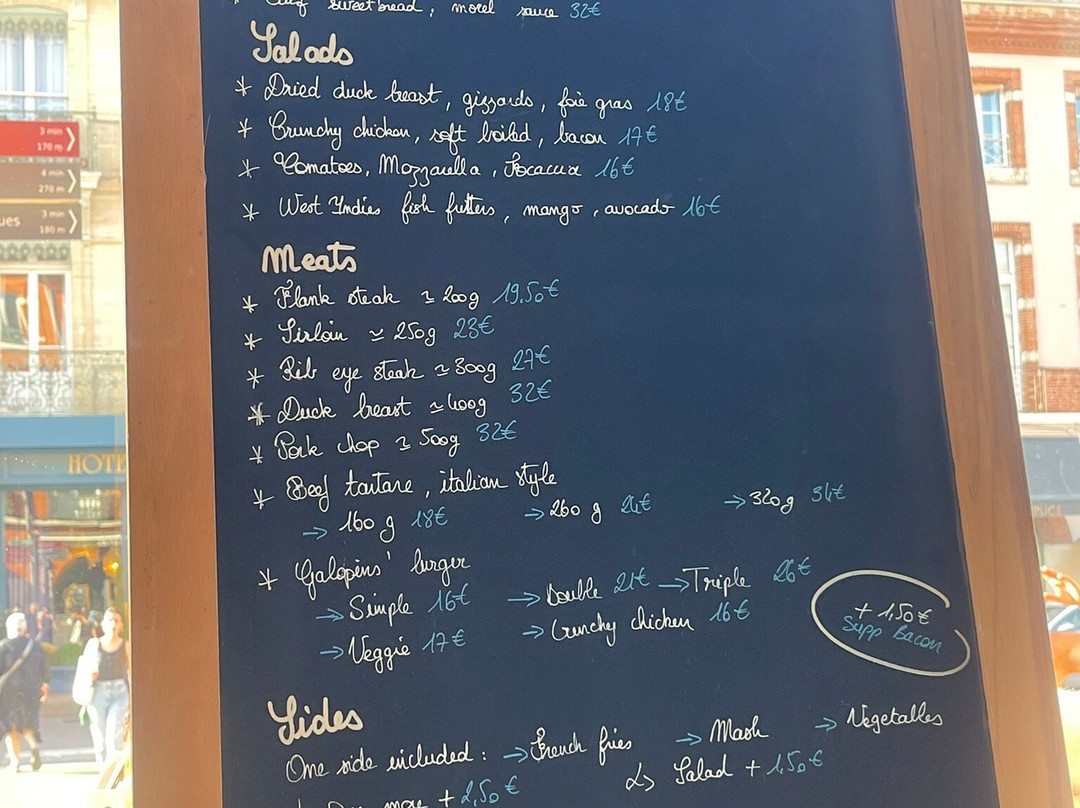 sweetbread, morel sauce 32€
Salads
* Dried duck breast, gizzards, foie gras 18€
* Crunchy chicken, soft boiled, bacon 17€
* Tomatoes, Mozzarella, Focaccia 16€
* West Yndies fish fritters, mango, avocado 16€
Meats
* Flank steak ≃ 200g 19.50€
* Sirloin ≃ 250g 23€
* Rib eye steak ≃ 300g 27€
* Duck breast ≃ 400g 32€
* Pork chop ≃ 500g 32€
* Beef tartare, italian style
→ 160 g 18€ → 260 g 26€ → 320g 34€
* Galopins' burger
→ Simple 16€ → Double 21€ → Triple 26€
→ Veggie 17€ → Crunchy chicken 16€
+ 1,50€
Supp Bacon
Sides
One side included: → French fries → Mash → Vegetables
↳ Salad + 1,50€
more + 2,50€
3 min
170 m
4 min
270 m
ues 3 min
180 m
HOTE